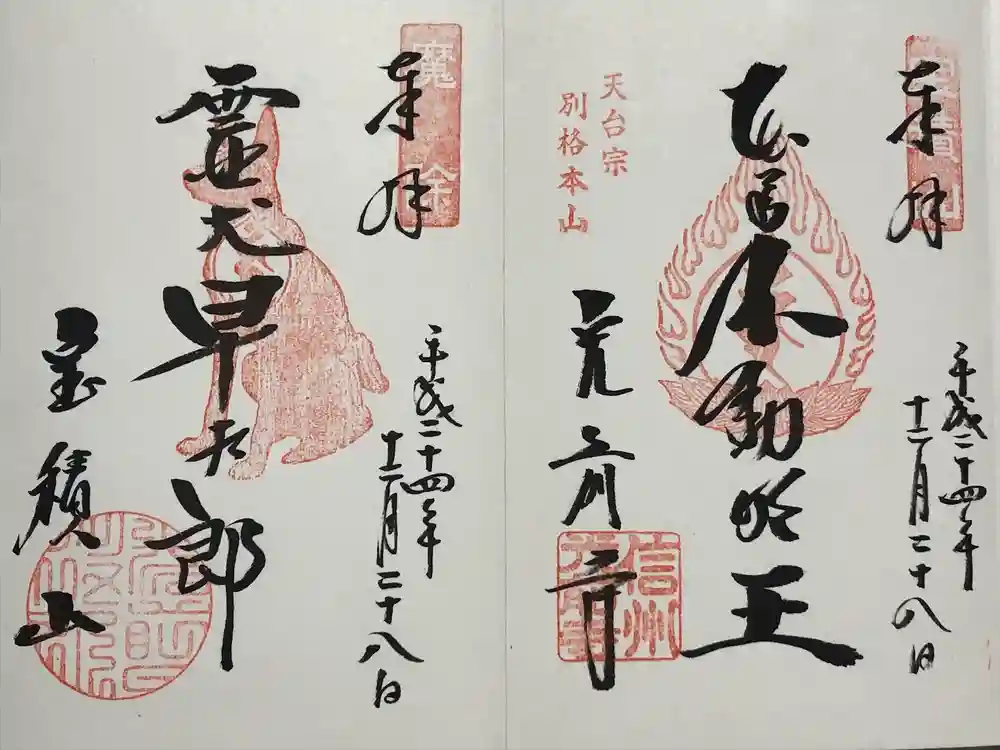 奉拝
平成二十四年
十二月二十八日
本尊不動明王
天台宗
別格本山
光前寺
信州
光前寺
魔除
奉拝
平成二十四年
十二月二十八日
霊犬早太郎
宝積山